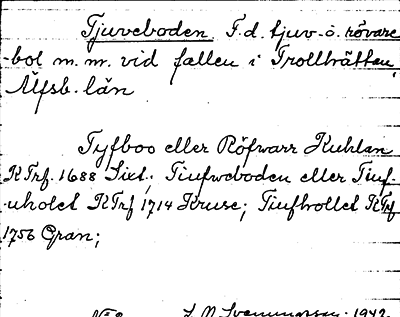 Tjuveboden F.d. tjuv- o. rövare
-bol m.m. vid fallen i Trollhättan,
Älfsb. län
Tyfboo eller Röfwarr Kuhlan
KTrf. 1688 Sixt.; Tiufweboden eller Tiuf-
-uholet KTrf 1714 Kruse; Tiufhollet KTrf
1756 Gran;
1942